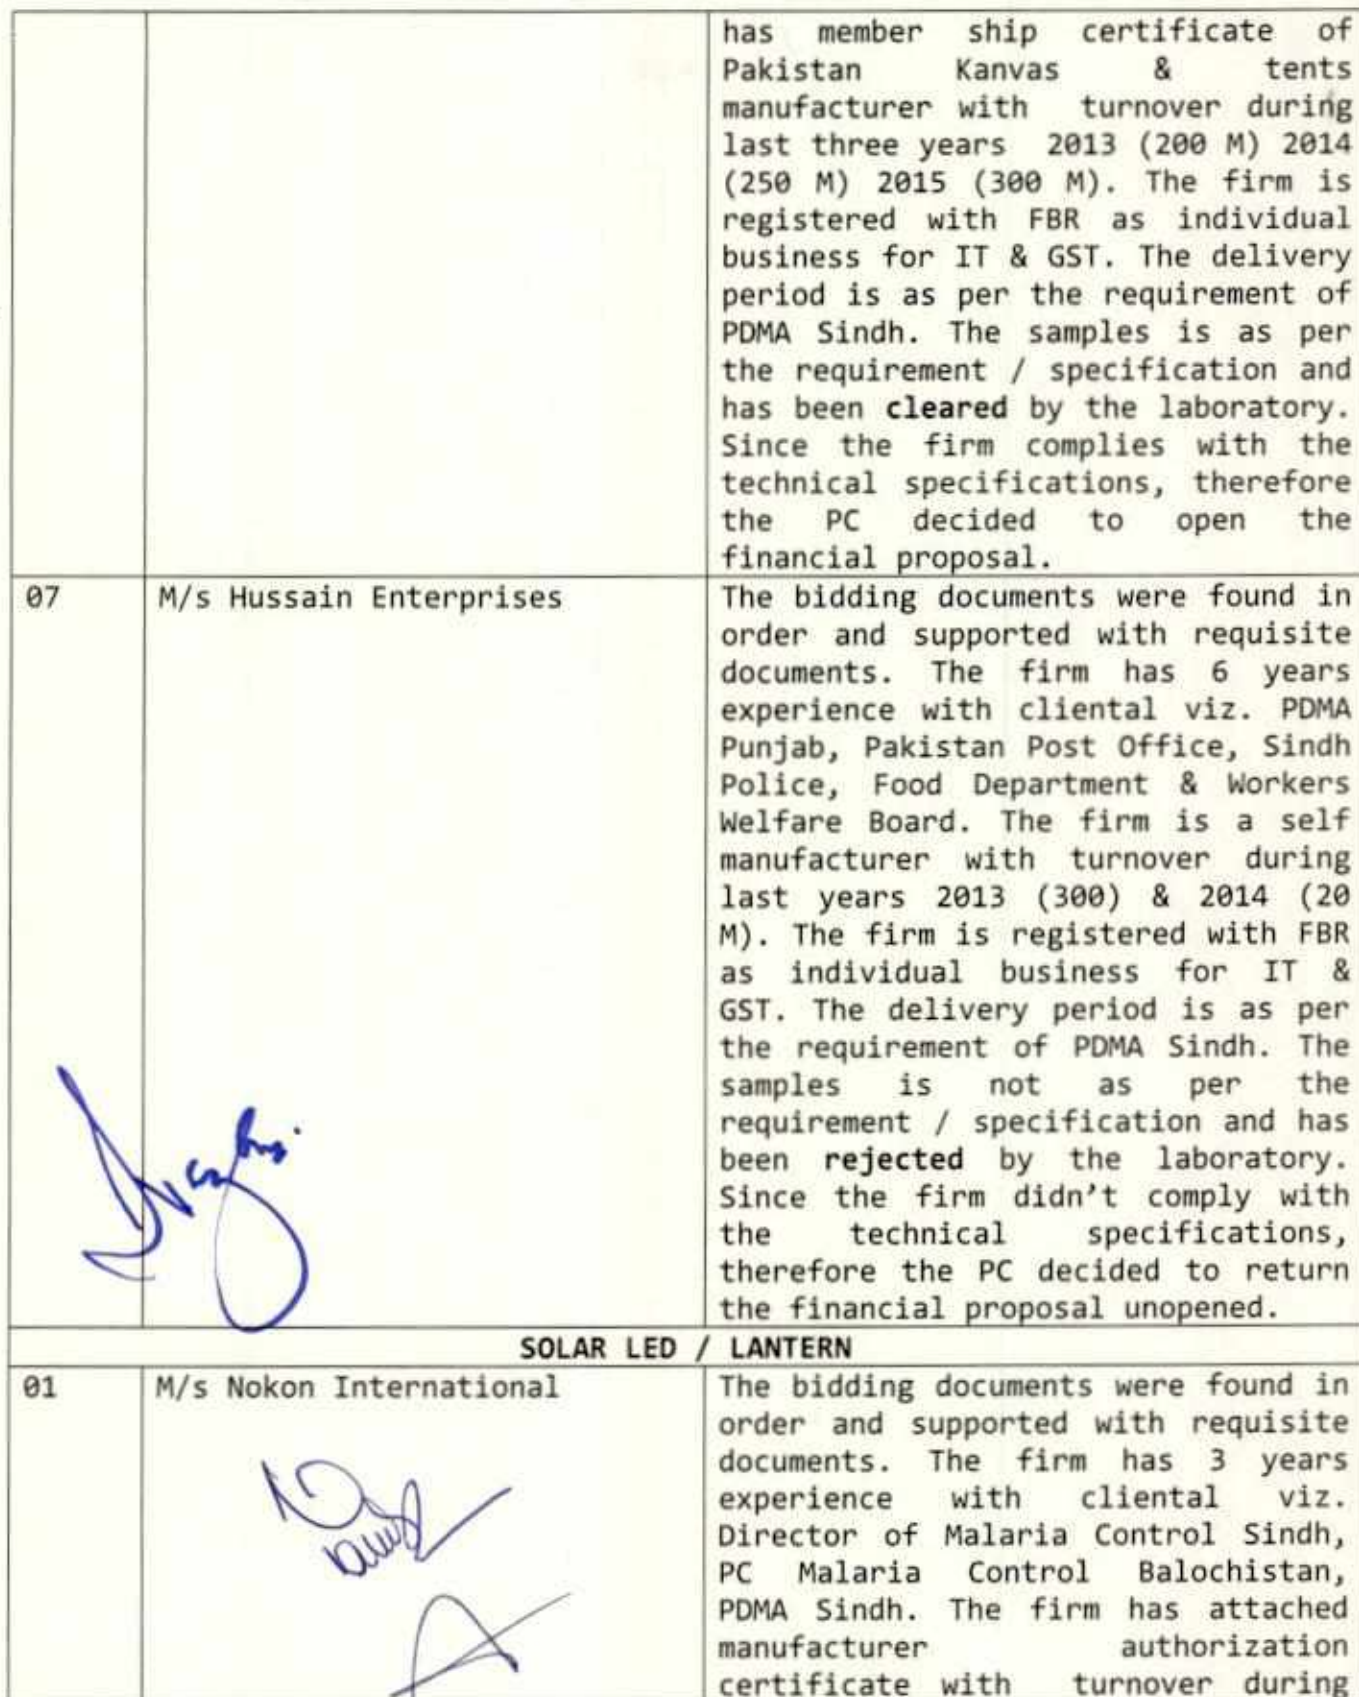 has member ship certificate of
Pakistan Kanvas & tents
manufacturer with turnover during
last three years 2013 (200 M) 2014
(250 M) 2015 (300 M). The firm is
registered with FBR as individual
business for IT & GST. The delivery
period is as per the requirement of
PDMA Sindh. The samples is as per
the requirement / specification and
has been cleared by the laboratory.
Since the firm complies with the
technical specifications, therefore
the PC decided to open the
financial proposal.
07 M/s Hussain Enterprises The bidding documents were found in
order and supported with requisite
documents. The firm has 6 years
experience with cliental viz. PDMA
Punjab, Pakistan Post Office, Sindh
Police, Food Department & Workers
Welfare Board. The firm is a self
manufacturer with turnover during
last years 2013 (300) & 2014 (20
M). The firm is registered with FBR
as individual business for IT &
GST. The delivery period is as per
the requirement of PDMA Sindh. The
samples is not as per the
requirement / specification and has
been rejected by the laboratory.
Since the firm didn't comply with
the technical specifications,
therefore the PC decided to return
the financial proposal unopened.
SOLAR LED / LANTERN
01 M/s Nokon International The bidding documents were found in
order and supported with requisite
documents. The firm has 3 years
experience with cliental viz.
Director of Malaria Control Sindh,
PC Malaria Control Balochistan,
PDMA Sindh. The firm has attached
manufacturer authorization
certificate with turnover during